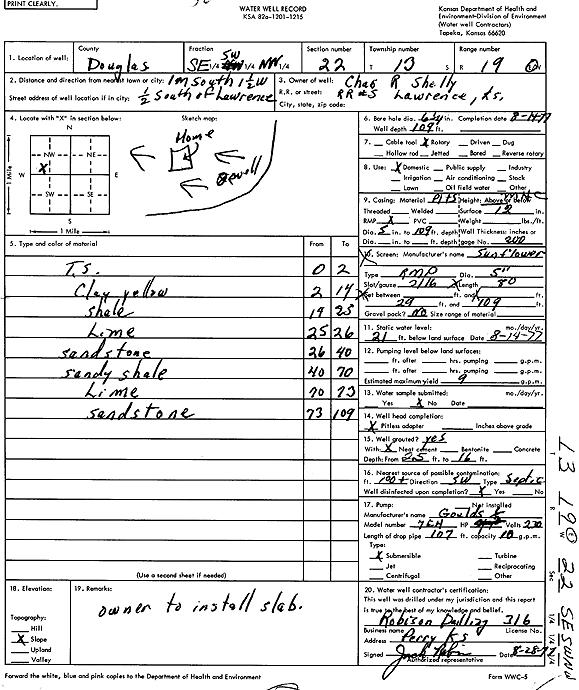 PRINT CLEARLY.
WATER WELL RECORD
KSA 82a-1201-1215
Kansas Department of Health and
Environment-Division of Environment
(Water well Contractors)
Topeka, Kansas 66620
1. Location of well:
County
Douglas
Fraction
SE 1/4 SW 1/4 NW 1/4
Section number
22
Township number
T 13 S
Range number
R 19 E/W
2. Distance and direction from nearest town or city: 1 m South 1 1/2 W
Street address of well location if in city: 1/2 South of Lawrence
3. Owner of well: Chas R Shelly
R.R. or street: RR #5
City, state, zip code: Lawrence, Ks.
4. Locate with "X" in section below:
Sketch map:
N
1 Mile
NW
NE
W
X
E
SW
SE
S
1 Mile
Home
well
5. Type and color of material
From
To
T.S. 0 2
Clay yellow 2 19
shale 19 25
Lime 25 26
sandstone 26 40
sandy shale 40 70
Lime 70 73
sandstone 73 109
(Use a second sheet if needed)
6. Bore hole dia. in. Completion date 8-14-77
Well depth 109 ft.
7. Cable tool X Rotary Driven Dug
Hollow rod Jetted Bored Reverse rotary
8. Use: X Domestic Public supply Industry
Irrigation Air conditioning Stock
Lawn Oil field water Other
9. Casing: Material Height: Above or below
Threaded Welded Surface 12 in.
RMP X PVC Weight lbs./ft.
Dia. 5 in. to 109 ft. depth Wall Thickness: inches or
Dia. in. to ft. depth gage No. 200
10. Screen: Manufacturer's name Sunflower
Type RMP Dia. 5"
Slot/gauze 2/16 Length 80
Set between ft. and ft.
29 ft. and 109 ft.
Gravel pack? No Size range of material
11. Static water level: mo./day/yr.
21 ft. below land surface Date 8-14-77
12. Pumping level below land surfaces:
ft. after hrs. pumping g.p.m.
ft. after hrs. pumping g.p.m.
Estimated maximum yield 9 g.p.m.
13. Water sample submitted: mo./day/yr.
Yes X No Date
14. Well head completion:
X Pitless adapter Inches above grade
15. Well grouted? yes
With: X Neat cement Bentonite Concrete
Depth: From ft. to 16 ft.
16. Nearest source of possible contamination:
ft. 100+ Direction SW Type Septic
Well disinfected upon completion? X Yes No
17. Pump: Not installed
Manufacturer's name Goulds
Model number 7EH HP Volts 230
Length of drop pipe 107 ft. capacity 10 g.p.m.
Type:
X Submersible Turbine
Jet Reciprocating
Centrifugal Other
18. Elevation:
Topography:
Hill
X Slope
Upland
Valley
19. Remarks:
owner to install slab.
20. Water well contractor's certification:
This well was drilled under my jurisdiction and this report
is true to the best of my knowledge and belief.
Robison Drilling 316
Business name License No.
Address Perry Ks
Signed Date 8-28-77
Authorized representative
Forward the white, blue and pink copies to the Department of Health and Environment
Form WWC-5